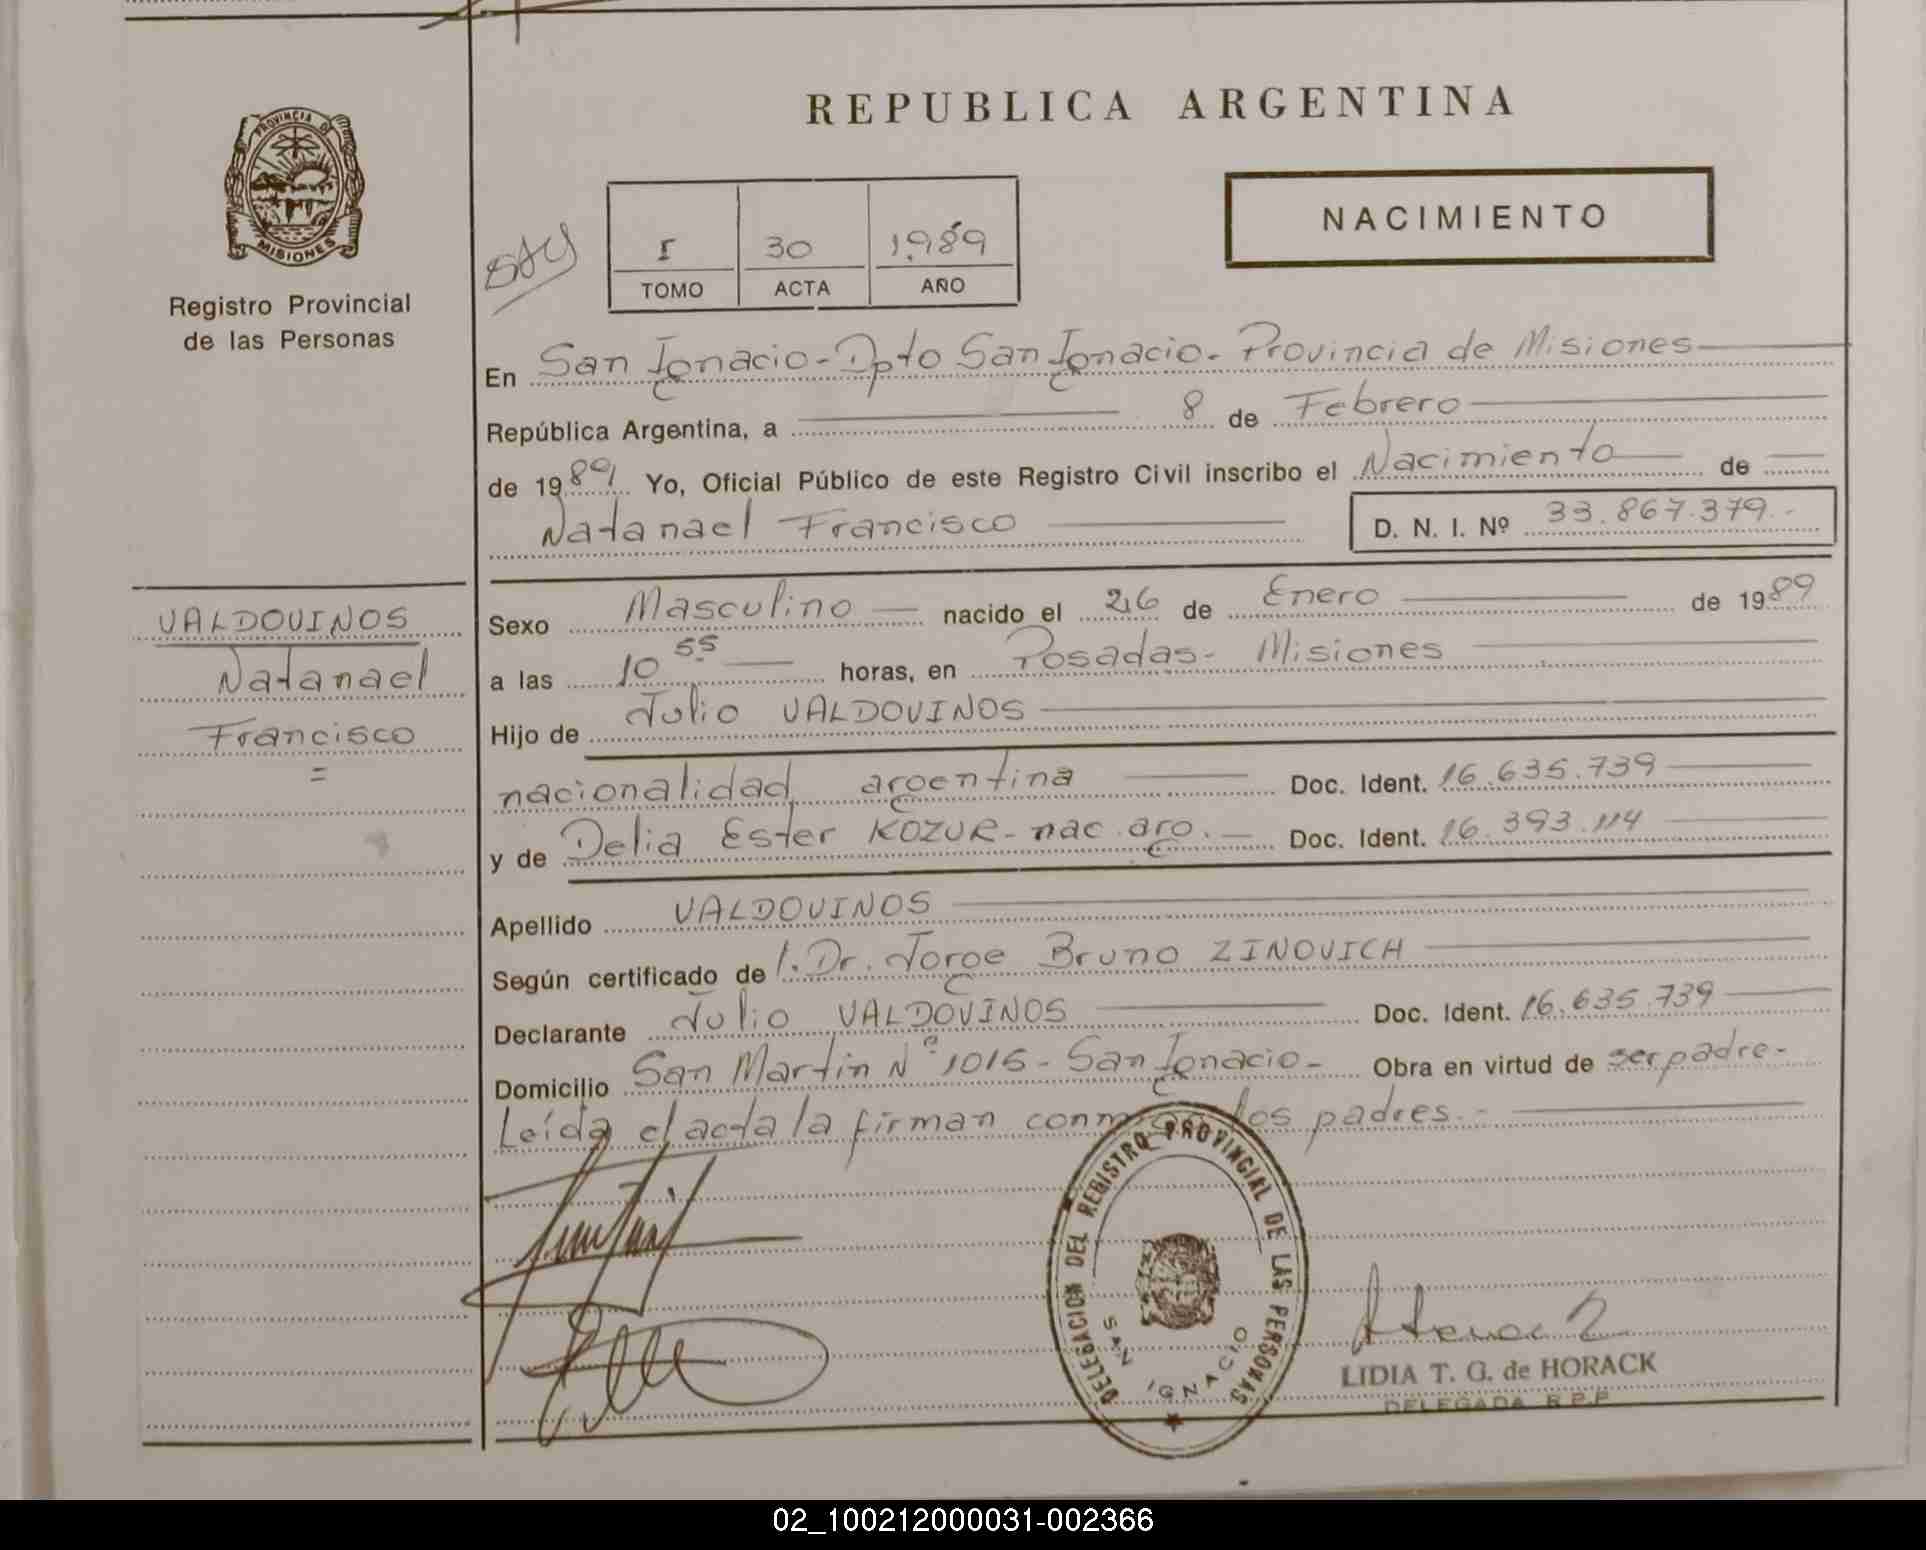 PROVINCIA DE
MISIONES
Registro Provincial
de las Personas
REPUBLICA ARGENTINA
NACIMIENTO
I 30 1.989
TOMO ACTA AÑO
En San Ignacio - Dpto San Ignacio - Provincia de Misiones
República Argentina, a 8 de Febrero
de 1989 Yo, Oficial Público de este Registro Civil inscribo el Nacimiento de
Natanael Francisco D. N. I. Nº 33.867.379.-
VALDOVINOS
Natanael
Francisco
=
Sexo Masculino nacido el 26 de Enero de 1989
a las 10 55 horas, en Posadas - Misiones
Hijo de Julio VALDOVINOS
nacionalidad argentina Doc. Ident. 16.635.739
y de Delia Ester KOZUR - nac. arg. Doc. Ident. 16.393.114
Apellido VALDOVINOS
Según certificado de l. Dr. Jorge Bruno ZINOVICH
Declarante Julio VALDOVINOS Doc. Ident. 16.635.739
Domicilio San Martin Nº 1015 - San Ignacio - Obra en virtud de ser padre -
Leída el acta la firman los padres. -
DELEGACION DEL REGISTRO PROVINCIAL DE LAS PERSONAS
SAN IGNACIO
LIDIA T. G. de HORACK
DELEGADA R.P.P
02_100212000031-002366